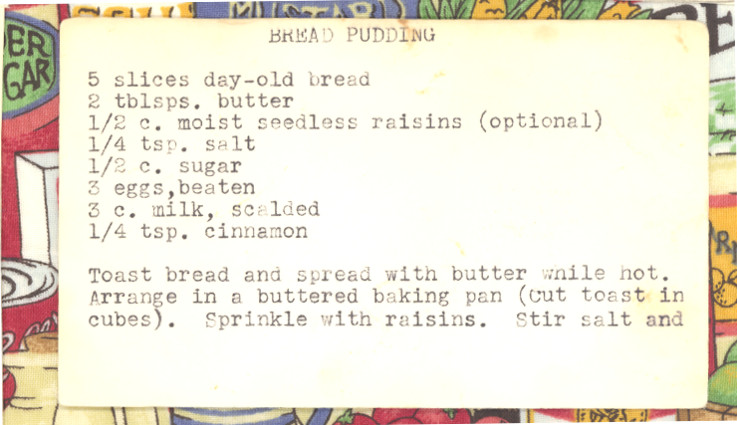 BREAD PUDDING
5 slices day-old bread
2 tblsps. butter
1/2 c. moist seedless raisins (optional)
1/4 tsp. salt
1/2 c. sugar
3 eggs,beaten
3 c. milk, scalded
1/4 tsp. cinnamon
Toast bread and spread with butter while hot.
Arrange in a buttered baking pan (cut toast in
cubes). Sprinkle with raisins. Stir salt and